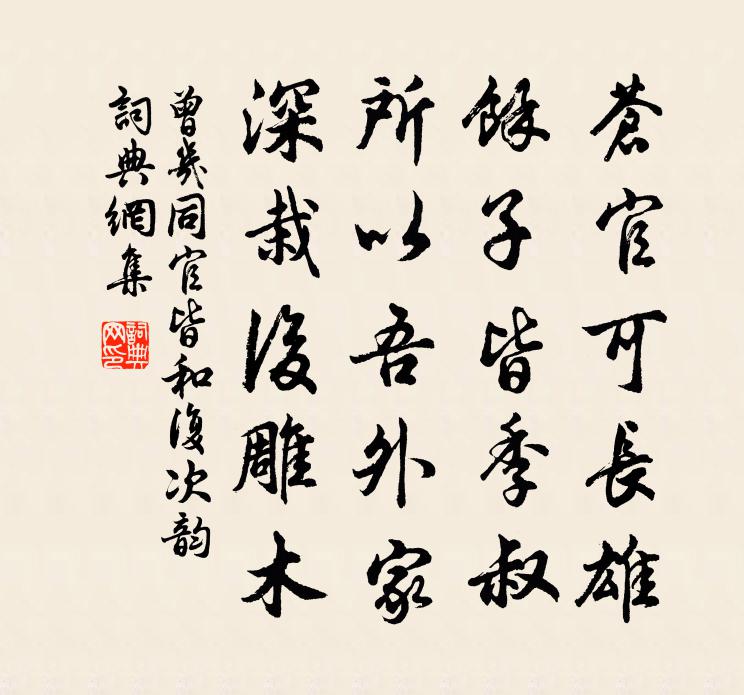 蒼官可長雄
餘子皆季叔
所以吾外家
深栽後雕木
曾幾同官皆和復次韵
詞典網集
詞典網印